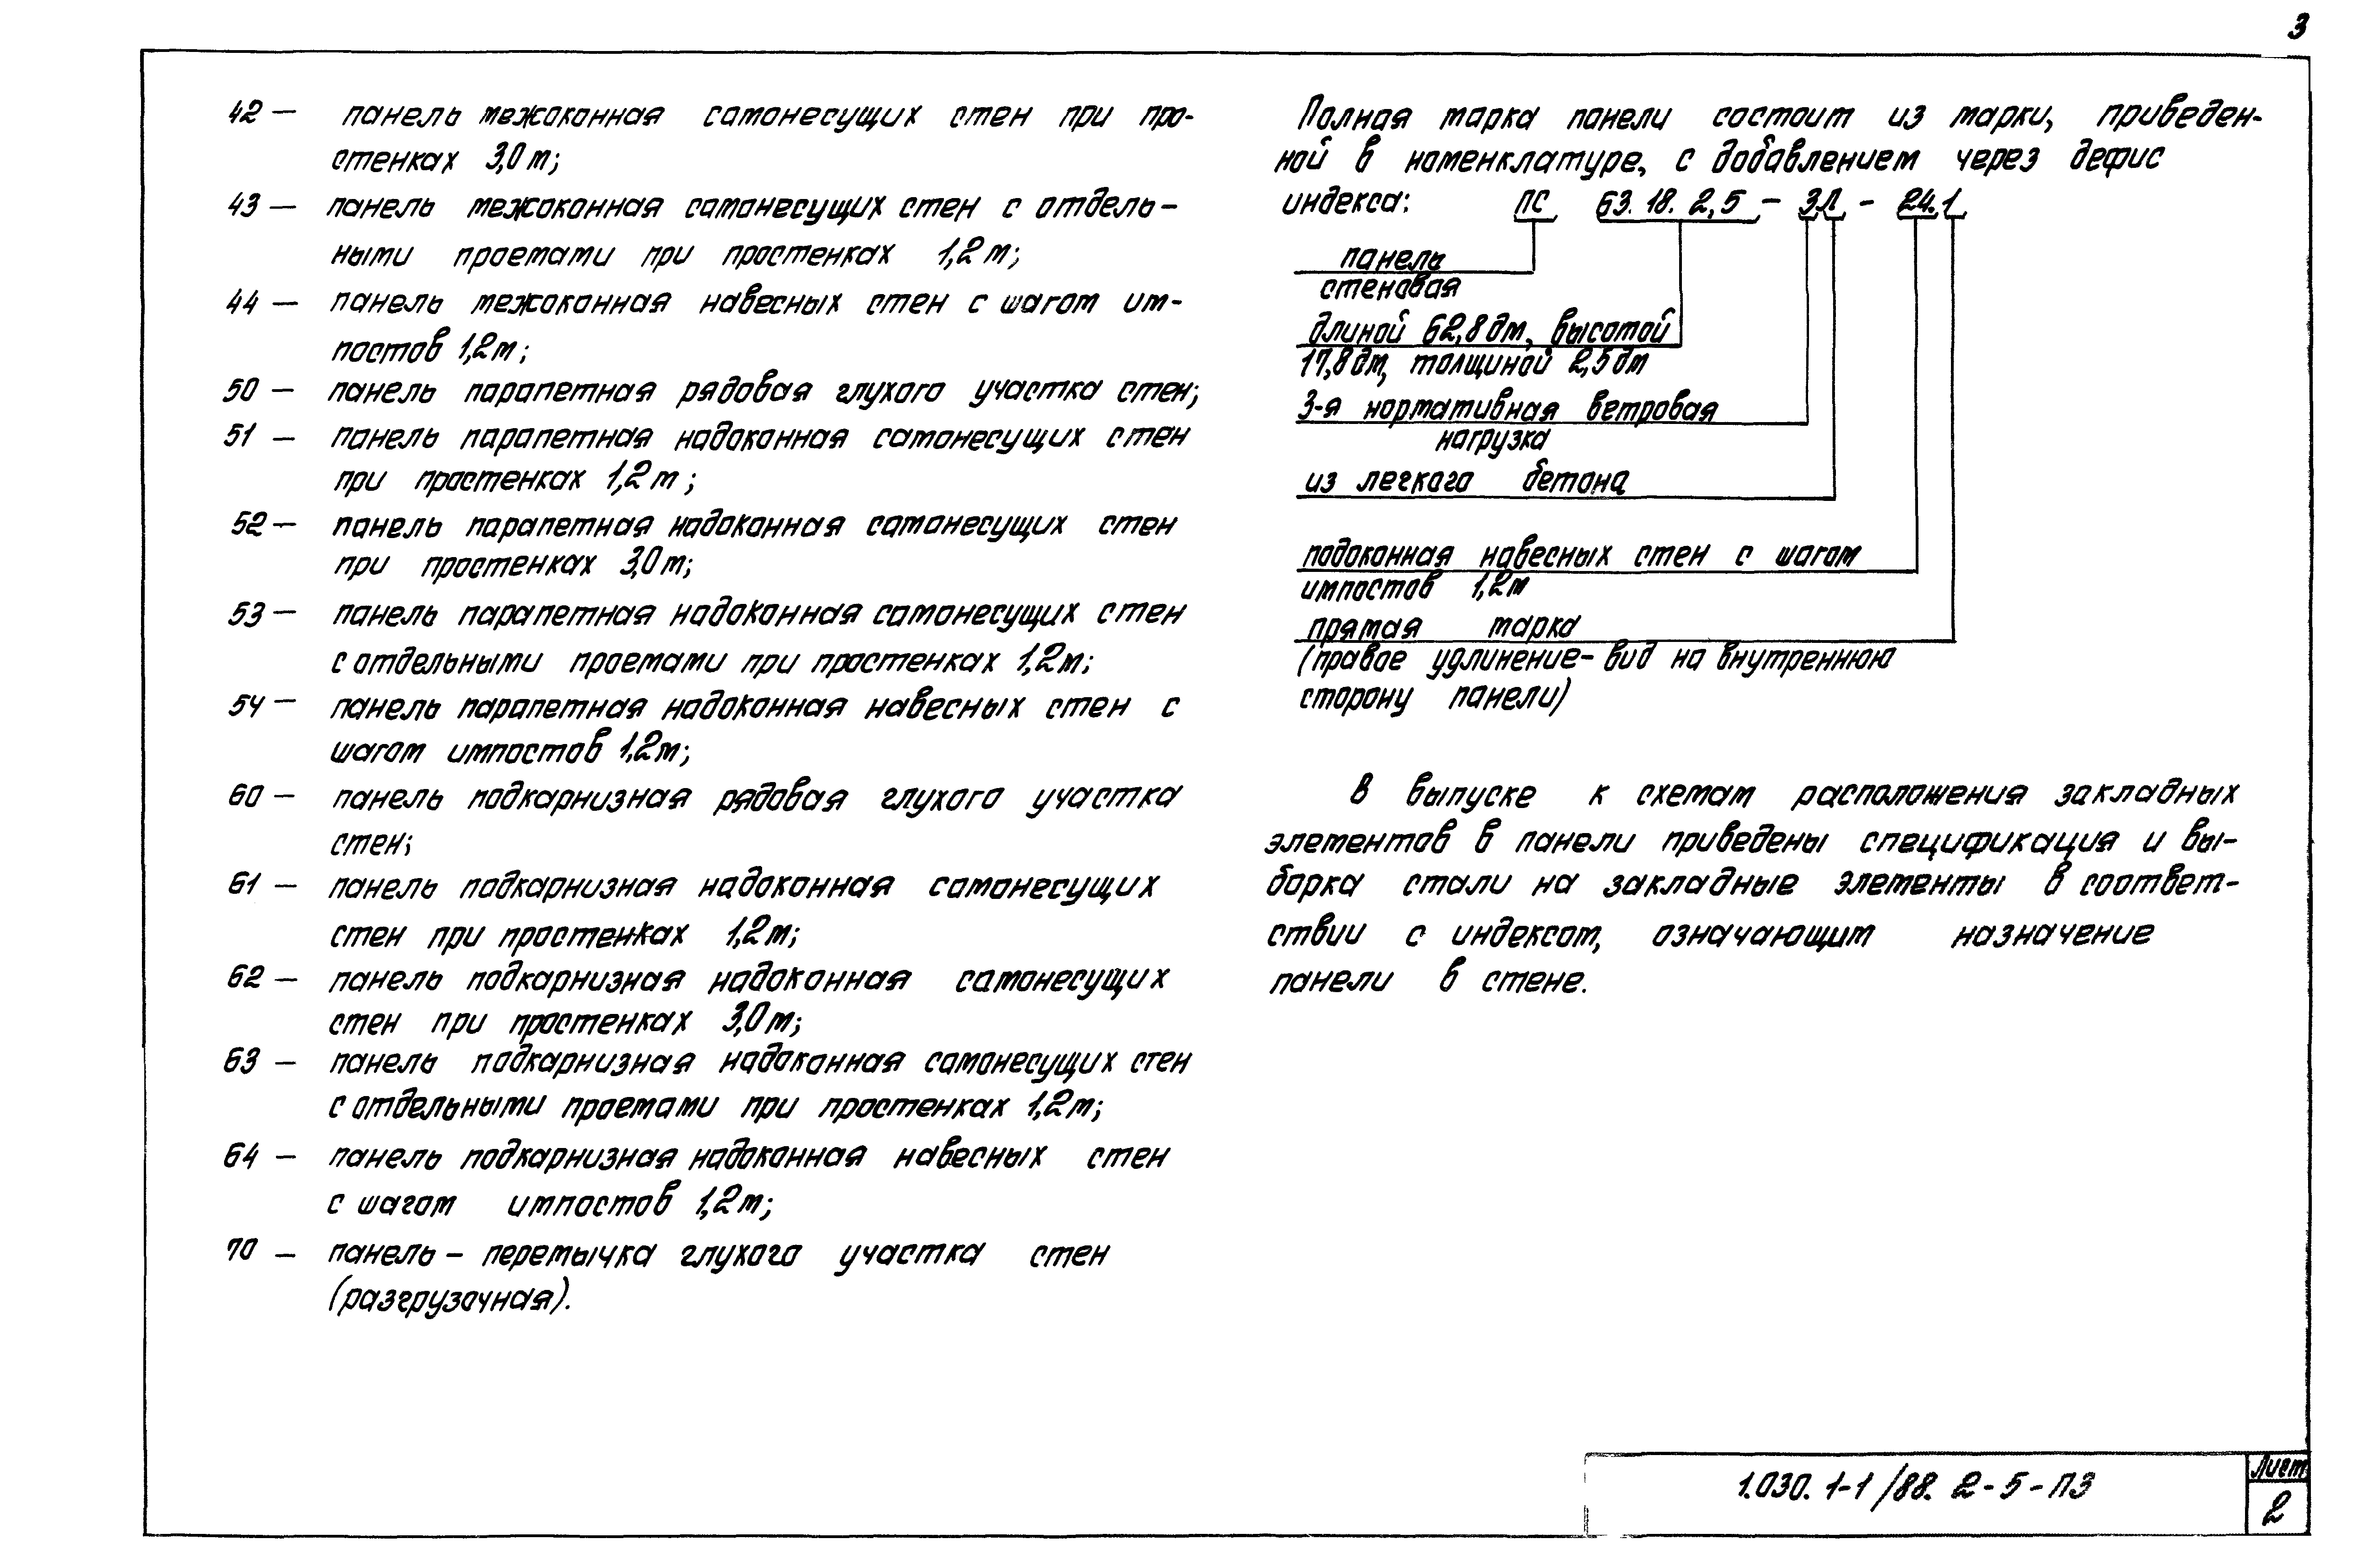 3
42 — панель межоконная самонесущих стен при про-
стенках 3,0 м;
43 — панель межоконная самонесущих стен с отдель-
ными проемами при простенках 1,2 м;
44 — панель межоконная навесных стен с шагом им-
постов 1,2 м;
50 — панель парапетная рядовая глухого участка стен;
51 — панель парапетная надоконная самонесущих стен
при простенках 1,2 м;
52 — панель парапетная надоконная самонесущих стен
при простенках 3,0 м;
53 — панель парапетная надоконная самонесущих стен
с отдельными проемами при простенках 1,2 м;
54 — панель парапетная надоконная навесных стен с
шагом импостов 1,2 м;
60 — панель подкарнизная рядовая глухого участка
стен;
61 — панель подкарнизная надоконная самонесущих
стен при простенках 1,2 м;
62 — панель подкарнизная надоконная самонесущих
стен при простенках 3,0 м;
63 — панель подкарнизная надоконная самонесущих стен
с отдельными проемами при простенках 1,2 м;
64 — панель подкарнизная надоконная навесных стен
с шагом импостов 1,2 м;
70 — панель - перемычка глухого участка стен
(разгрузочная).
Полная марка панели состоит из марки, приведен-
ной в номенклатуре, с добавлением через дефис
индекса: ПС 63.18.2,5 - 3Л - 24.1
панель
стеновая
длиной 62,8 дм, высотой
17,8 дм, толщиной 2,5 дм
3-я нормативная ветровая
нагрузка
из легкого бетона
подоконная навесных стен с шагом
импостов 1,2 м
прямая марка
(правое удлинение - вид на внутреннюю
сторону панели)
В выпуске к схемам расположения закладных
элементов в панели приведены спецификация и вы-
борка стали на закладные элементы в соответ-
ствии с индексом, означающим назначение
панели в стене.
1.030.1-1/88. 2-5-ПЗ
Лист
2